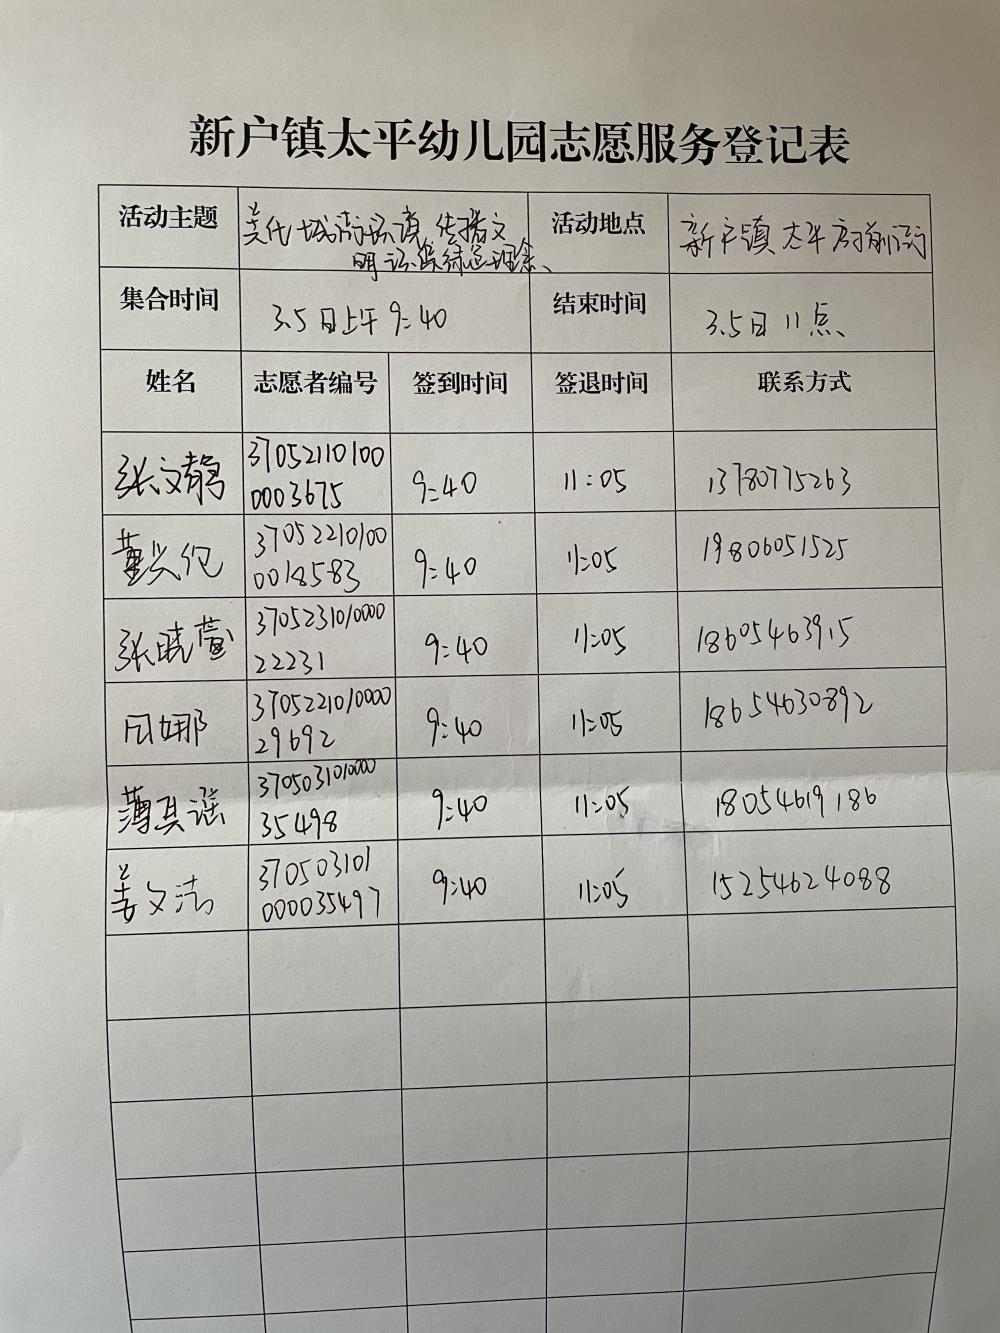 新户镇太平幼儿园志愿服务登记表
活动主题
美化城市环境 传播文
明 绿色理念、
活动地点
新户镇太平府前街
集合时间
3.5日上午9:40
结束时间
3.5日11点、
姓名 志愿者编号 签到时间 签退时间 联系方式
张文静 37052110100 9:40 11:05 13780775263
0003675
董兴纪 37052210100 9:40 11:05 19806051525
0018583
张晓萱 3705231010000 9:40 11:05 18605463915
22231
闫娜 3705221010000 9:40 11:05 18654630892
29692
薄其谣 3705031010000 9:40 11:05 18054619186
35498
姜文洁 370503101 9:40 11:05 15254624088
000035497